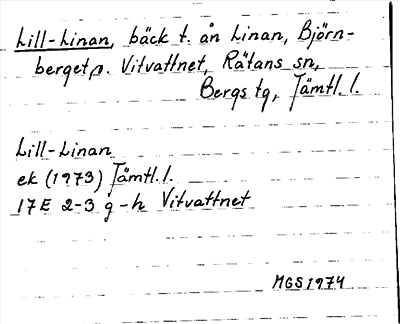 Lill-Linan, bäck t. ån Linan, Björn-
berget, o. Vitvattnet, Rätans sn,
Bergs tg, Jämtl. l.
Lill-Linan
ek (1973) Jämtl. l.
17E 2-3 g-h Vitvattnet
MGS 1974